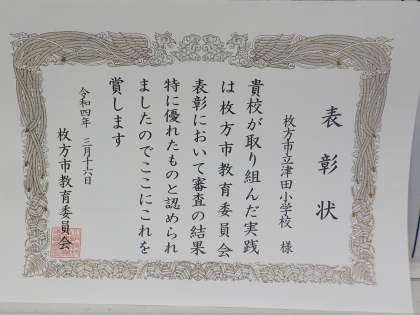 表彰状
枚方市立津田小学校 様
貴校が取り組んだ実践
は枚方市教育委員会
表彰において審査の結果
特に優れたものと認められ
ましたのでここにこれを
賞します
令和四年 三月十六日
枚方市教育委員会